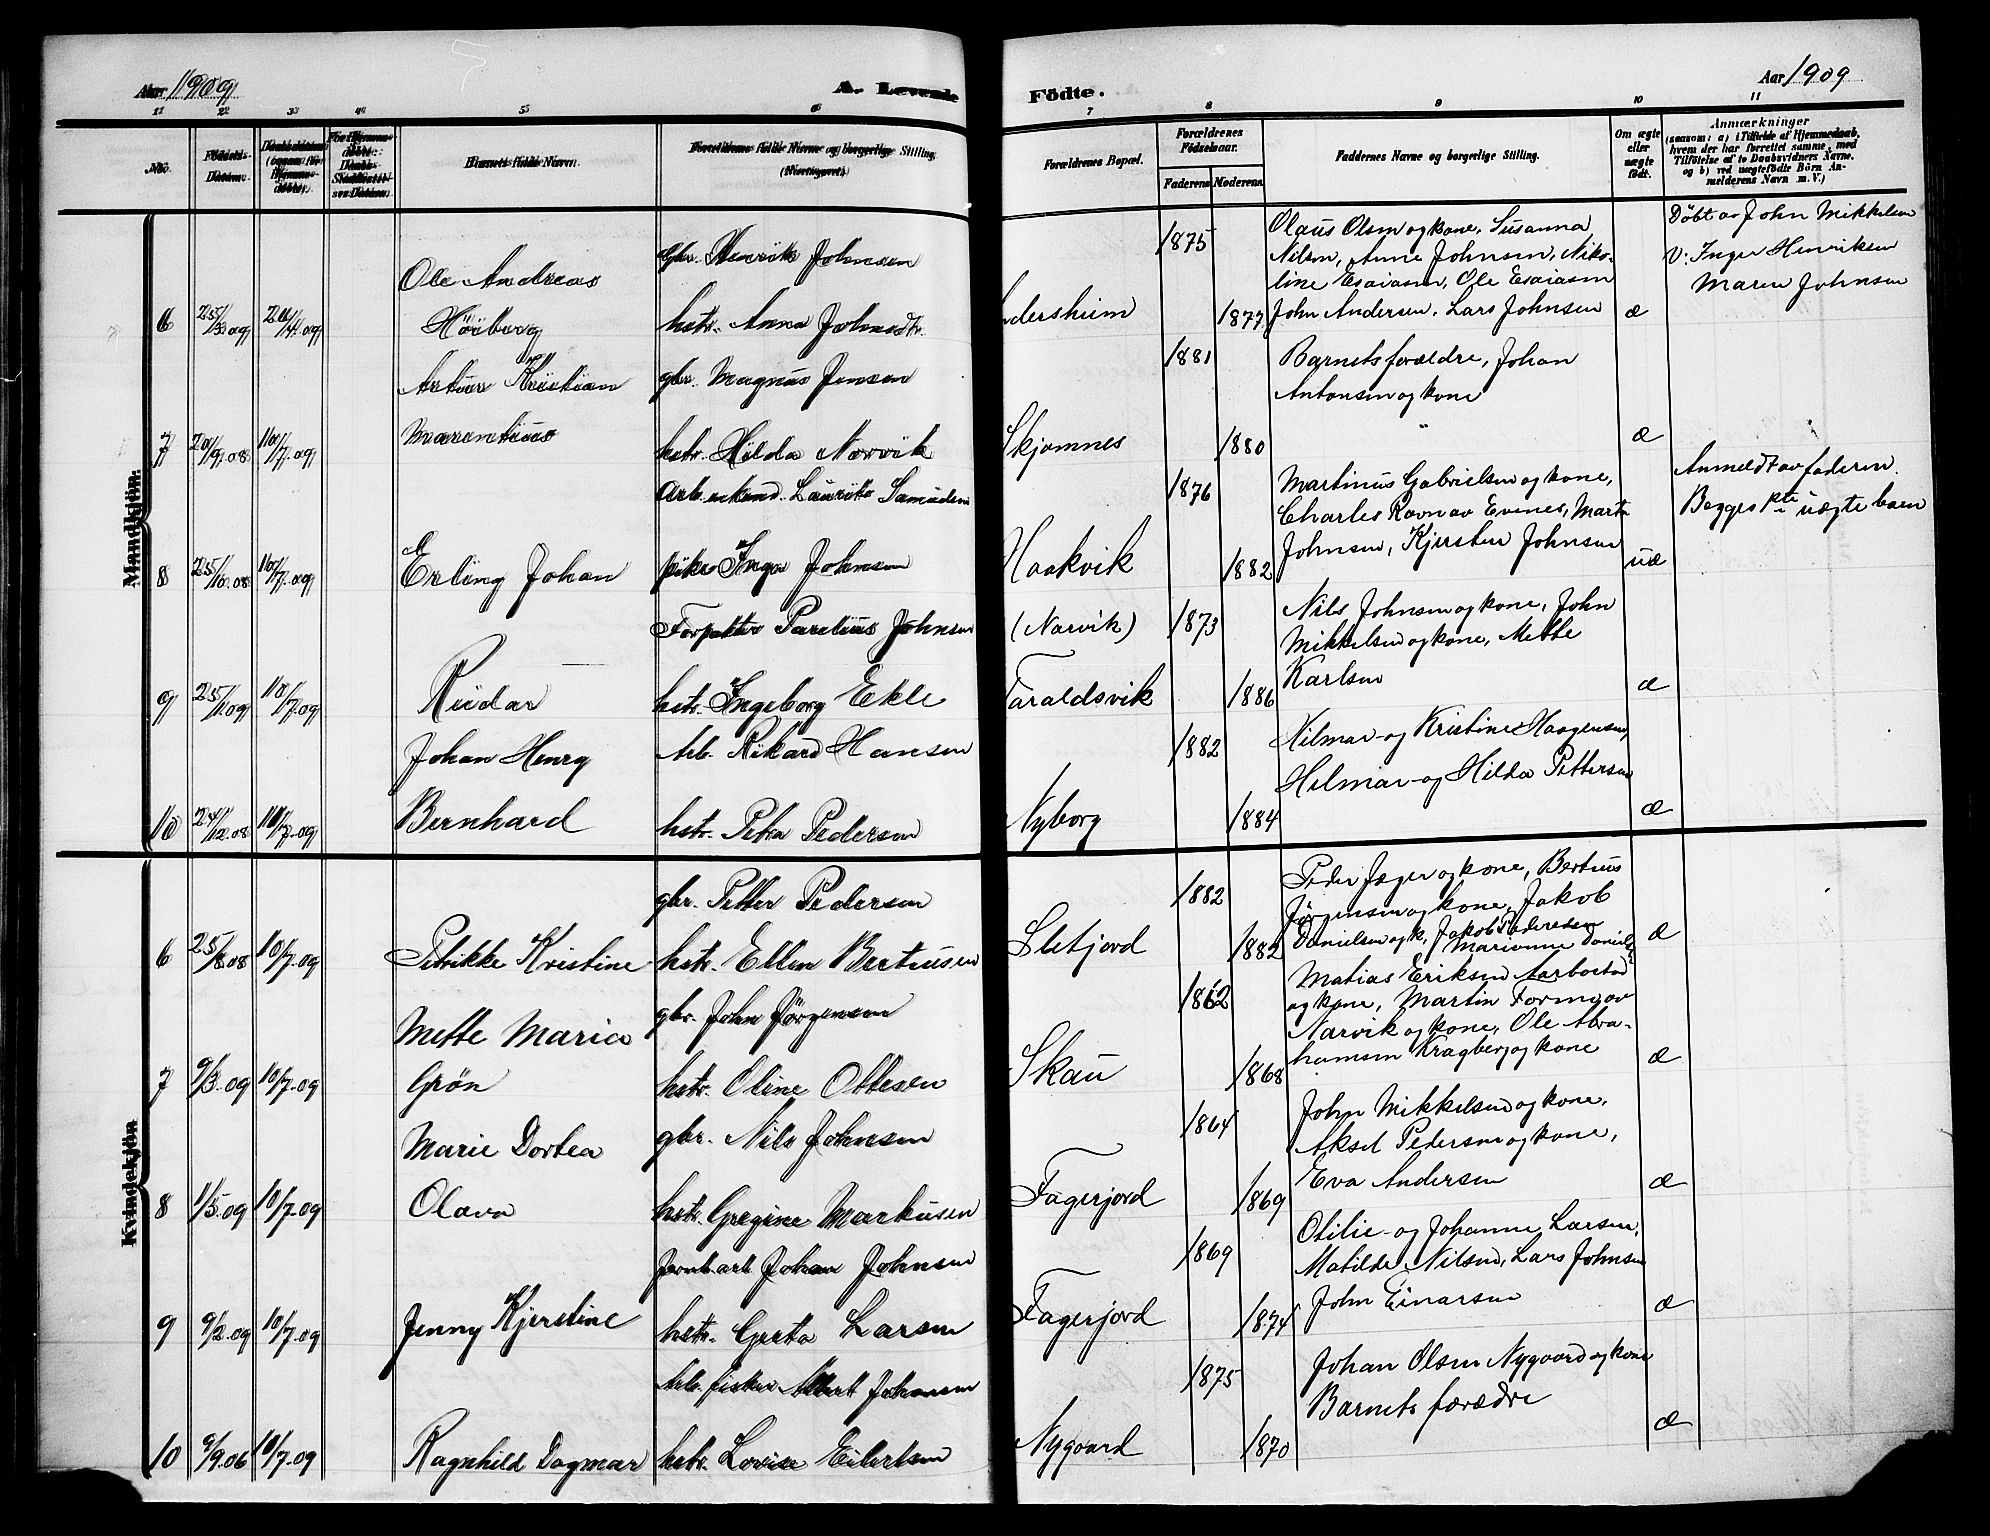 Aar 1909
A. Levende
Födte.
Aar 1909
1 2 3 4 5 6
7 8 9 10 11
No.
Födsels-
Datum.
Barnets fulde Navn.
Forældrenes fulde Navne og borgerlige Stilling.
Forældrenes Bopæl.
Forældrenes
Födselsaar.
Faderens Moderens
Faddernes Navne og borgerlige Stilling.
Om ægte
eller
uægte
födt.
Anmærkninger
(saasom: a) i Tilfælde af Hjemmedaab,
hvem der har forrettet samme, med
Tilföielse af to Daabsvidners Navne,
og b) ved uægtefödte Börn An-
melderens Navn m. V.)
Mandkjön.
6 25/3 09 /4 09
Ole Andreas
Höiberg
gbr. Henrik Johnsen
hstr. Anna Johnsdtr.
ndersheim
1875
1877
Olaus Olsen og kone, Susanna
Nilsen, Anne Johnsen, Niko-
line Esaiasen, Ole Esaiasen
John Andersen, Lars Johnsen
æ
Döbt av John Mikkelsen
v: Inger Henriksen
Maren Johnsen
7 20/9.08 10/7.09
Artur Kristian
Marentius
gbr. Magnus Jensen
hstr. Hilda Norvik
Skjomnes
1881
1880
Barnets forældre, Johan
Antonsen og kone
æ
8 25/10.08 10/7.09
Erling Johan
Arb. enkemd. Laurits Samuelsen
pike Inga Johnsen
Haakvik
1876
1882
Martinus Gabrielsen og kone,
Charles Ravn av Evenes, Marta
Johnsen, Kjersten Johnsen
uæ
Anmeldt av faderen.
Begges 1ste uægte barn
9 25/1.09 10/7.09
Reidar
Forpakter Parelius Johnsen
hstr. Ingeborg Ekle
(Narvik)
Taraldsvik
1873
1886
Nils Johnsen og kone, John
Mikkelsen og kone, Mette
Karlsen
æ
10 24/12.08 10/7.09
Johan Henry
Bernhard
Arb. Rikard Hansen
hstr. Petra Pedersen
Nyborg
1882
1884
Hilmar og Kristine Haagensen,
Helmar og Hilda Pettersen
æ
Kvindekjön
6 25/8.08 10/7.09
Petrikke Kristine
gbr. Petter Pedersen
hstr. Ellen Bertiusen
Sletjord
1882
1882
Peder Jæger og kone, Bertius
Jörgensen og kone, Jakob
Danielsen og k, Jakob Pedersen
Marianne Daniels
æ
7 9/3.09 10/7.09
Mette Maria
Grön
gbr. John Jörgensen
hstr. Oline Ottesen
Skau
1862
1868
Matias Eriksen Aarbostad
og kone, Martin Formo av
Narvik og kone, Ole Abra-
hamsen Kragberg og kone
æ
8 1/5.09 10/7.09
Marie Dortea
Olava
gbr. Nils Johnsen
hstr. Gregine Markusen
Fagerjord
1864
1869
John Mikkelsen og kone,
Aksel Pedersen og kone,
Eva Andersen
æ
9 9/2.09 10/7.09
Jenny Kjerstine
Jernb.arb Johan Johnsen
hstr. Greta Larsen
Fagerjord
1869
1874
Otilie og Johanne Larsen,
Matilde Nilsen, Lars Johnsen
John Einarsen
æ
10 9/9.06 10/7.09
Ragnhild Dagmar
Arb. fisker Albert Johansen
hstr. Lovise Eilertsen
Nygaard
1875
1870
Johan Olsen Nygaard og kone
Barnets forædre
æ